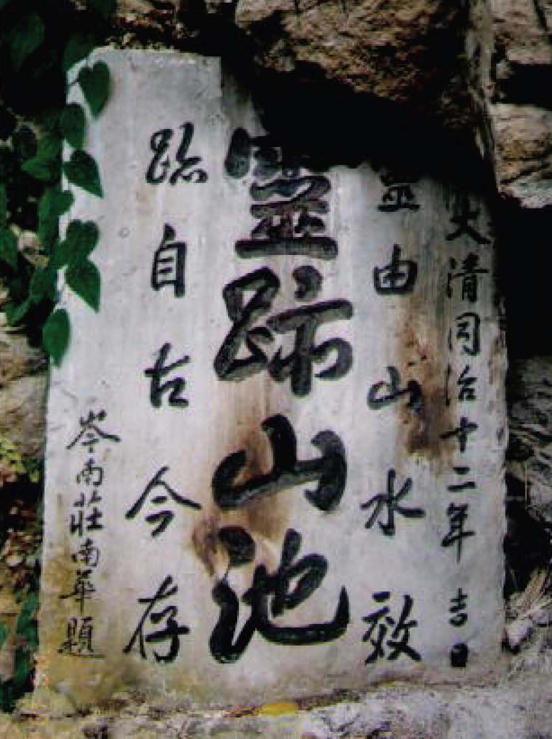 大清同治十二年吉日
靈由山水效
靈跡山池
跡自古今存
岑南莊南華題